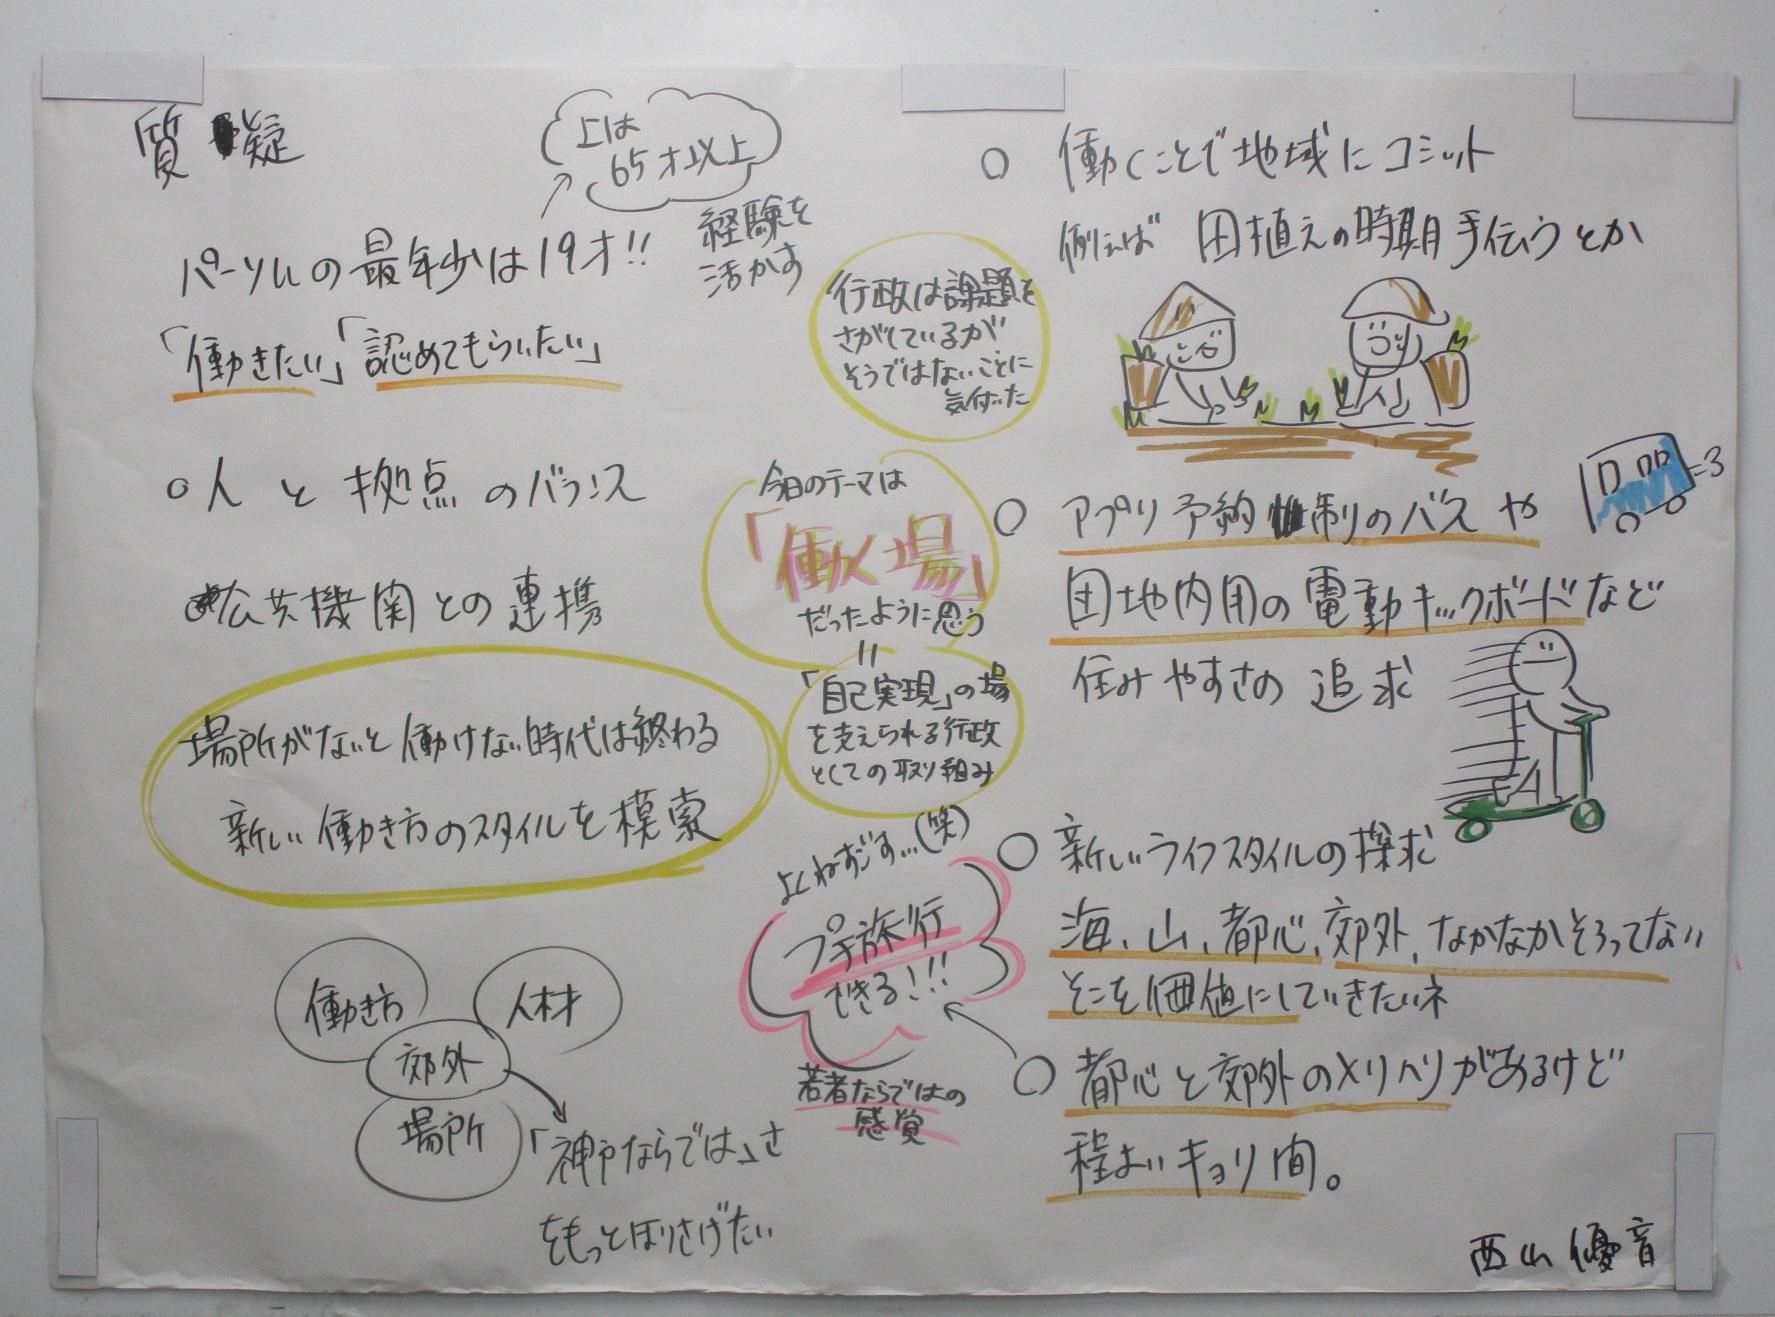 質疑
上は
65才以上
経験を
活かす
パーソルの最年少は19才!!
「働きたい」「認めてもらいたい」
○人と拠点のバランス
公共機関との連携
場所がないと働けない時代は終わる
新しい働き方のスタイルを模索
働き方
人材
郊外
場所
「神戸ならでは」さ
をもっとほりさげたい
行政は課題を
さがしているが
そうではないことに
気付いた
今日のテーマは
「働く場」
だったように思う
=
「自己実現」の場
を支えられる行政
としての取り組み
よくねすごす…(笑)
プチ旅行
できる!!!
若者ならではの
感覚
○ 働くことで地域にコミット
例えば 田植えの時期手伝うとか
○ アプリ予約制のバスや
団地内用の電動キックボードなど
住みやすさの追求
○ 新しいライフスタイルの探求
海、山、都心、郊外、なかなかそろってない
そこを価値にしていきたいネ
○ 都心と郊外のメリハリがあるけど
程よいキョリ間。
西山優音